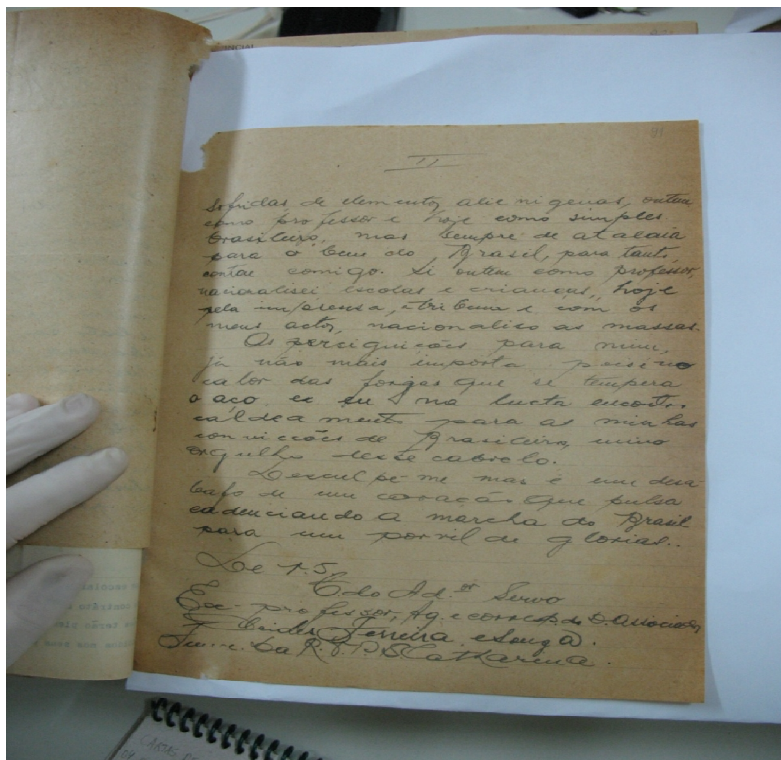 II
sofridas de elementos alienigenas, ontem
como professor e hoje como simples
brasileiro, mas sempre de atalaia
para o bem do Brasil, para tanto
contae comigo. Si ontem como professor,
nacionalisei escolas e crianças, hoje
pela imprensa, tribuna e com os
meus actos, nacionaliso as massas.
As perseguições para mim,
já não mais importa pois é no
calor das forgas que se tempera
o aço e eu na lucta encontro
caldeamento para as minhas
convicções de Brasileiro, unico
orgulho desse caboclo.
Desculpe-me mas é um desa
bafo de um coração que pulsa
cadenciando a marcha do Brasil
para um porvil de glorias..
De V.S.
Cdo Ad.or Servo
Ex-professor, Ag. e corresp. do D. Associados
Ferreira e Souza.
da R. V. P. S. Catharina.